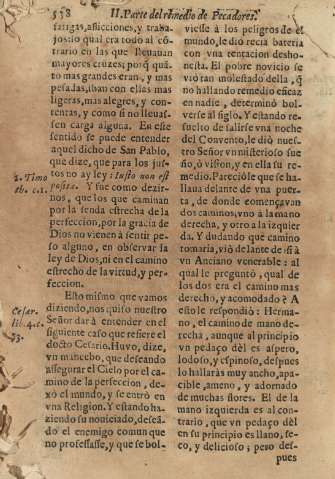 558 II. Parte del remedio de Pecadores.
fatigas, aflicciones, y traba-
josssio qual era todo al cõ-
trario en las que lleuauan
mayores cruzes; porq̃ quã-
to mas grandes eran, y mas
pesadas, iban con ellas mas
ligeras, mas alegres, y con-
tentas, y como si no lleuas-
sen carga alguna. En este
sentido se puede entender
aquel dicho de San Pablo,
que dize, que para los jus-
tos no ay ley: Iusto non est
posita. Y fue como dezir-
nos, que los que caminan
por la senda estrecha de la
perfeccion, por la gracia de
Dios no vienen à sentir pe-
so alguno, en observar la
ley de Dios, ni en el camino
estrecho de la virtud, y per-
feccion.
Esto mismo que vamos
diziendo, nos quiso nuestro
Señor dar à entender en el
siguiente caso que refiere el
docto Cesario. Huvo, dize,
vn mancebo, que deseando
assegurar el Cielo por el ca-
mino de la perfeccion, de-
xò el mundo, y se entrò en
vna Religion. Y estando ha-
ziendo su noviciado, deseã-
do el enemigo comun que
no professasse, y que se bol-
1. Timo
th. c. 1.
Cesar.
lib. 4. c.
53.
viesse à los peligros de el
mundo, le diò recia bateria
con vna tentacion desho-
nesta. El pobre novicio se
viò tan molestado della, q̃
no hallando remedio eficaz
en nadie, determinò bol-
verse al siglo. Y estando re-
suelto de salirse vna noche
del Convento, le diò nues-
tro Señor vn misterioso sue
ño, ò vision, y en ella su re-
medio. Pareciòle que se ha-
llaua delante de vna puer-
ta, de donde començavan
dos caminos, vno à la mano
derecha, y otro à la izquier
da. Y dudando qual camino
tomaria, viò delante de si à
vn Anciano venerable: al
qual le preguntò, qual de
los dos era el camino mas
derecho, y acomodado? A
esto le respondiò: Herma-
no, el camino de mano de-
recha, aunque al principio
vn pedaço dèl es aspero,
lodoso, y espinoso, despues
lo hallaràs muy ancho, apa-
cible, ameno, y adornado
de muchas flores. El de la
mano izquierda es al con-
trario, que vn pedaço dèl
en su principio es llano, se-
co, y delicioso; pero des-
pues